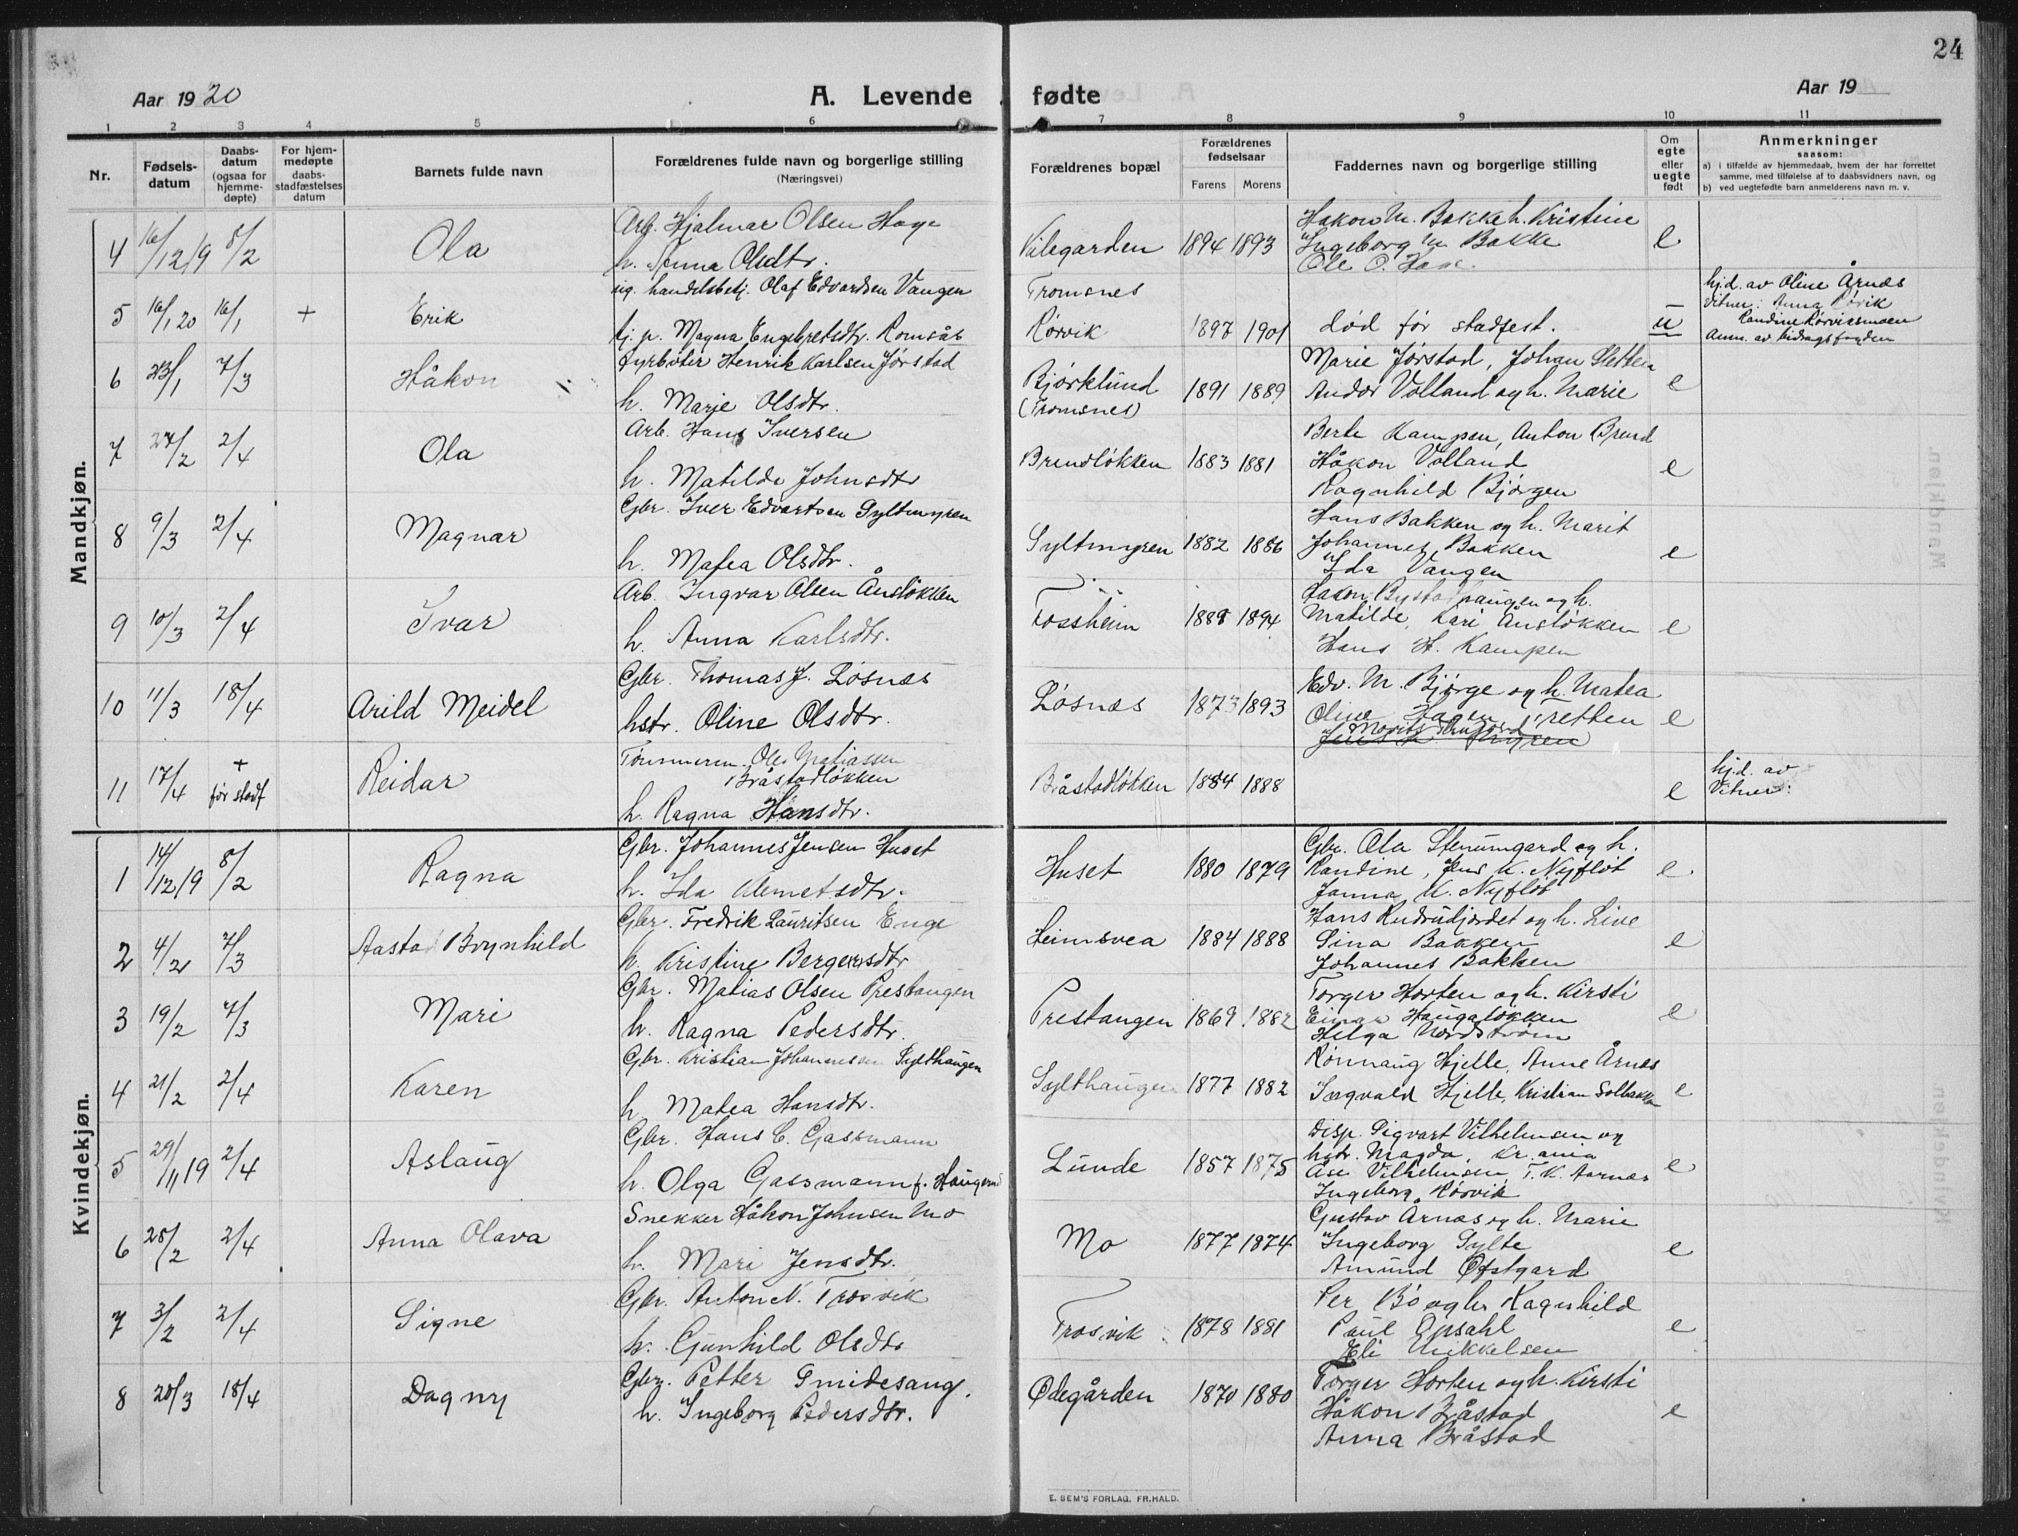 24
Aar 1920
A. Levende fødte
Aar 19
1 2 3 4 5 6 7 8 9 10 11
Nr.
Fødsels-
datum
Daabs-
datum
(ogsaa for
hjemme-
døpte)
For hjem-
medøpte
daabs-
stadfæstelses
datum
Barnets fulde navn
Forældrenes fulde navn og borgerlige stilling
(Næringsvei)
Forældrenes bopæl
Forældrenes
fødselsaar
Farens Morens
Faddernes navn og borgerlige stilling
Om
egte
eller
uegte
født
Anmerkninger
saasom:
a) i tilfælde av hjemmedaab, hvem der har forrettet
samme, med tilføielse af to daabsvidners navn, og
b) ved uegtefødte barn anmelderens navn m. v.
Mandkjøn.
4 16/12 19 8/2 Ola
Arb. Hjalmar Olsen Hage
h. Anna Olsdtr.
Kilegarden 1894 1893
Hakon M. Bakke h. Kristine
Ingeborg M Bakke
Ole O. Hage
e
5 16/1 20 16/1 + Erik
ug. handelsbetj. Olaf Edvardsen Vangen
tj. p. Magna Engebretsdtr. Romsås
Tromsnes
Rørvik 1897 1901
død før stadfest.
u
hj.d. av Oline Årnæs
Vitner: Anna Rørvik
Randine Rørviksmoen
Anm. av bidragsfogden
6 23/1 7/3 Håkon
Fyrbøter Henrik Karlsen Jørstad
h. Marie Olsdtr.
Bjørklund
(Tromsnes) 1891 1889
Marie Jørstad, Johan Sletten
Andor Volland og h. Marie
e
7 27/2 2/4 Ola
Arb. Hans Iversen
h. Matilde Johnsdtr
Brendløkken 1883 1881
Berte Kampen, Anton Brend
Håkon Volland
Ragnhild Bjørgen
e
8 9/3 2/4 Magnar
Gbr. Iver Edvartsen Syltmyren
h. Matea Olsdtr.
Syltmyren 1882 1886
Hans Bakken og h. Marit
Johannes Bakken
Ida Vangen
e
9 10/3 2/4 Ivar
Arb. Ingvar Olsen Ånsløkken
h. Anna Karlsdtr.
Fossheim 1888 1894
haugen og h.
Matilde, Kari Ånsløkken
Hans H. Kampen
e
10 11/3 18/4 Arild Meidel
Gbr. Thomas J. Løsnæs
hstr. Oline Olsdtr.
Løsnæs 1873 1893
Edv. M. Bjørge og h. Matea
Oline Hagen, Tretten
e
11 17/4 + før stadf Reidar
Tømmerm. Ole Matiassen
Bråstadløkken
h. Ragna Hansdtr.
Bråstadløkken 1884 1888
e
hj.d. av
Vitner:
Kvindekjøn.
1 14/12 19 8/2 Ragna
Gbr. Johannes Jensen Huset
h. Ida Klemetsdtr.
Huset 1880 1879
Gbr. Ola Stenumgard og h.
Randine, Jens K. Nyfløt
Janna K. Nyfløt
e
2 4/2 7/3 Aastad Brynhild
Gbr. Fredrik Lauritsen Enge
h. Kristine Bergersdtr
Heimsvea 1884 1888
Hans Rudrudjordet og h. Live
Sina Bakken
Johannes Bakken
e
3 19/2 7/3 Mari
Gbr. Matias Olsen Prestangen
h. Ragna Pedersdtr.
Prestangen 1869 1882
Torger Horten og h. Kirsti
Einar Haugaløkken
Helga Nordstrøm
e
4 21/2 2/4 Karen
Gbr. Kristian Johannessen Sylthaugen
h. Matea Hansdtr.
Sylthaugen 1877 1882
Rønnaug Hjelle, Anne Årnæs
Torgvald Hjelle, Kristian Solbakken
e
5 29/11 19 2/4 Aslaug
Gbr. Hans C. Gassmann
h. Olga Gassmann f. Haugerud
Lunde 1857 1875
Disp. Sigvart Vilhelmsen og
hstr. Magda, Kr.ania
Åse Vilhelmsen, T. K. Aarnæs
Ingeborg Rørvik
e
6 28/2 2/4 Anna Olava
Snekker Håkon Johnsen Mo
h. Mari Jensdtr.
Mo 1877 1874
Gustav Årnæs og h. Marie
Ingeborg Sylte
Amund Øfstgard
e
7 3/2 2/4 Signe
Gbr. Anton N. Trosvik
h. Gunhild Olsdtr
Trosvik 1878 1881
Per Bø og h. Ragnhild
Paul Opsahl
Eli Mikkelsen
e
8 20/3 18/4 Dagny
Gbr. Petter Smidesang.
h. Ingeborg Pedersdtr.
Ødegården 1870 1880
Torger Horten og h. Kirsti
Håkon Bråstad
Anna Bråstad
e
E. SEM'S FORLAG. FR.HALD.